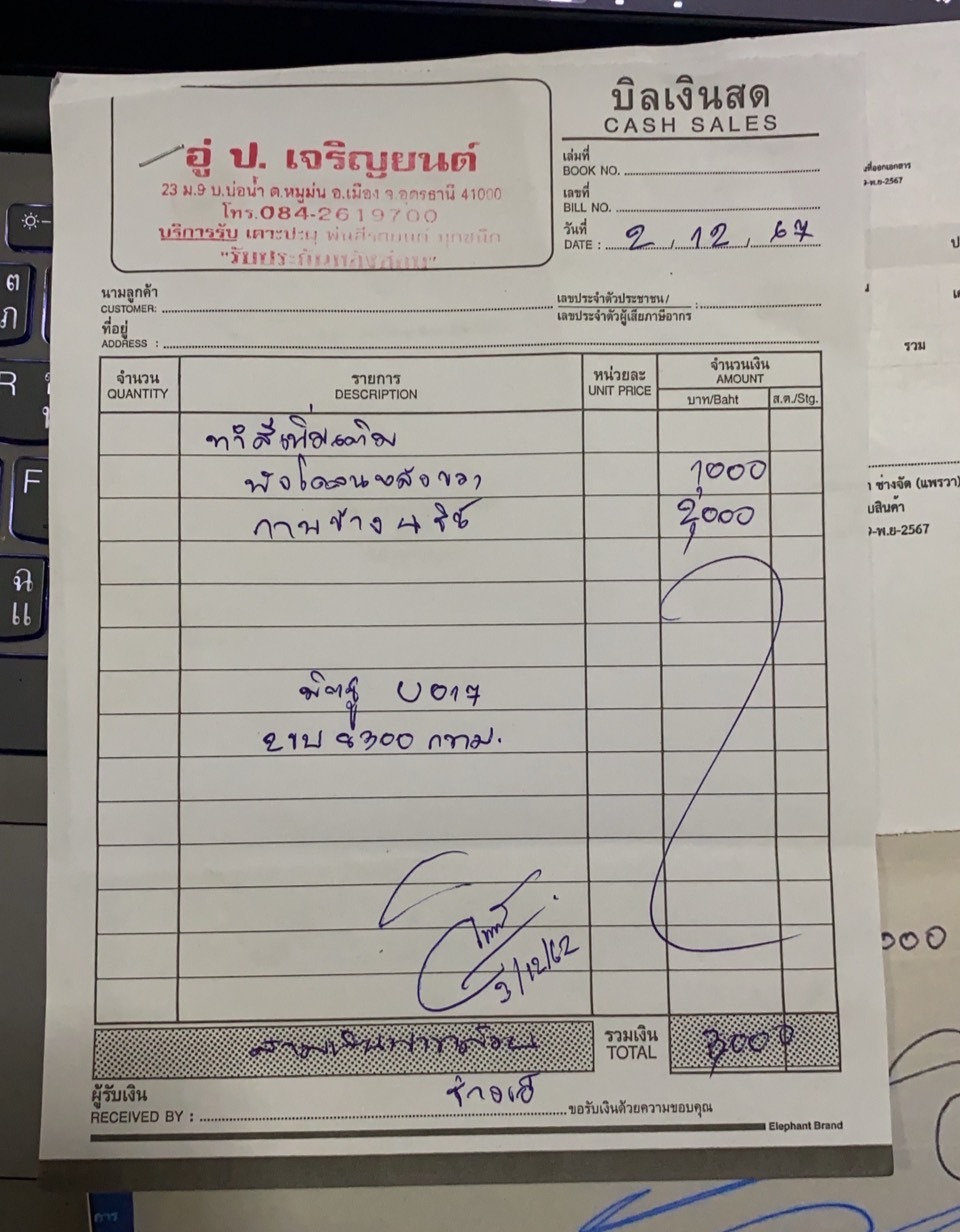 บิลเงินสด
CASH SALES
อู่ ป. เจริญยนต์
23 ม.9 บ.บ่อน้ำ ต.หมูม่น อ.เมือง จ.อุดรธานี 41000
โทร.084-2619700
บริการรับ เคาะปะผุ พ่นสีรถยนต์ ทุกชนิด
"รับประกันหลังซ่อม"
เล่มที่
BOOK NO.
เลขที่
BILL NO.
วันที่
DATE : 2 / 12 / 67
นามลูกค้า
CUSTOMER:
เลขประจำตัวประชาชน/
เลขประจำตัวผู้เสียภาษีอากร :
ที่อยู่
ADDRESS :
จำนวน รายการ หน่วยละ จำนวนเงิน
QUANTITY DESCRIPTION UNIT PRICE AMOUNT
บาท/Baht ส.ต./Stg.
ทำสีเพิ่มเติม
บังโคลนหลังขวา 1,000
กาบข้าง 2,000
มิตซู
8300 กทม.
สามพันบาทถ้วน
รวมเงิน
TOTAL 3,000
ผู้รับเงิน
RECEIVED BY : ขอรับเงินด้วยความขอบคุณ
Elephant Brand
พ.ย-2567
ป
รวม
ช่างจัด (แพรวา)
บสินค้า
-พ.ย-2567
000
การ
ต
ภ
R
F
ฉ
แ